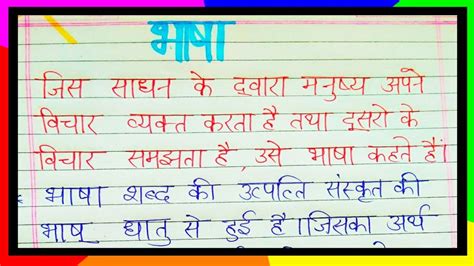 भाषा
जिस साधन के द्वारा मनुष्य अपने
विचार व्यक्त करता है तथा दूसरो के
विचार समझता है, उसे भाषा कहते हैं।
भाषा शब्द की उत्पत्ति संस्कृत की
भाष् धातु से हुई है। जिसका अर्थ